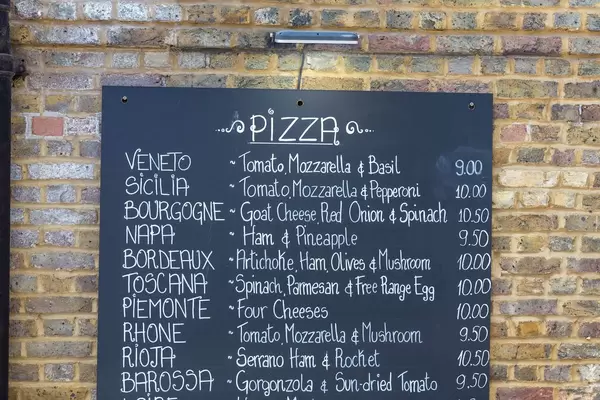 PIZZA
VENETO ~ Tomato, Mozzarella & Basil 9.00
SICILIA ~ Tomato, Mozzarella & Pepperoni 10.00
BOURGOGNE ~ Goat Cheese, Red Onion & Spinach 10.50
NAPA ~ Ham & Pineapple 9.50
BORDEAUX ~ Artichoke, Ham, Olives & Mushroom 10.00
TOSCANA ~ Spinach, Parmesan & Free Range Egg 10.00
PIEMONTE ~ Four Cheeses 10.00
RHONE ~ Tomato, Mozzarella & Mushroom 9.50
RIOJA ~ Serrano Ham & Rocket 10.50
BAROSSA ~ Gorgonzola & Sun-dried Tomato 9.50